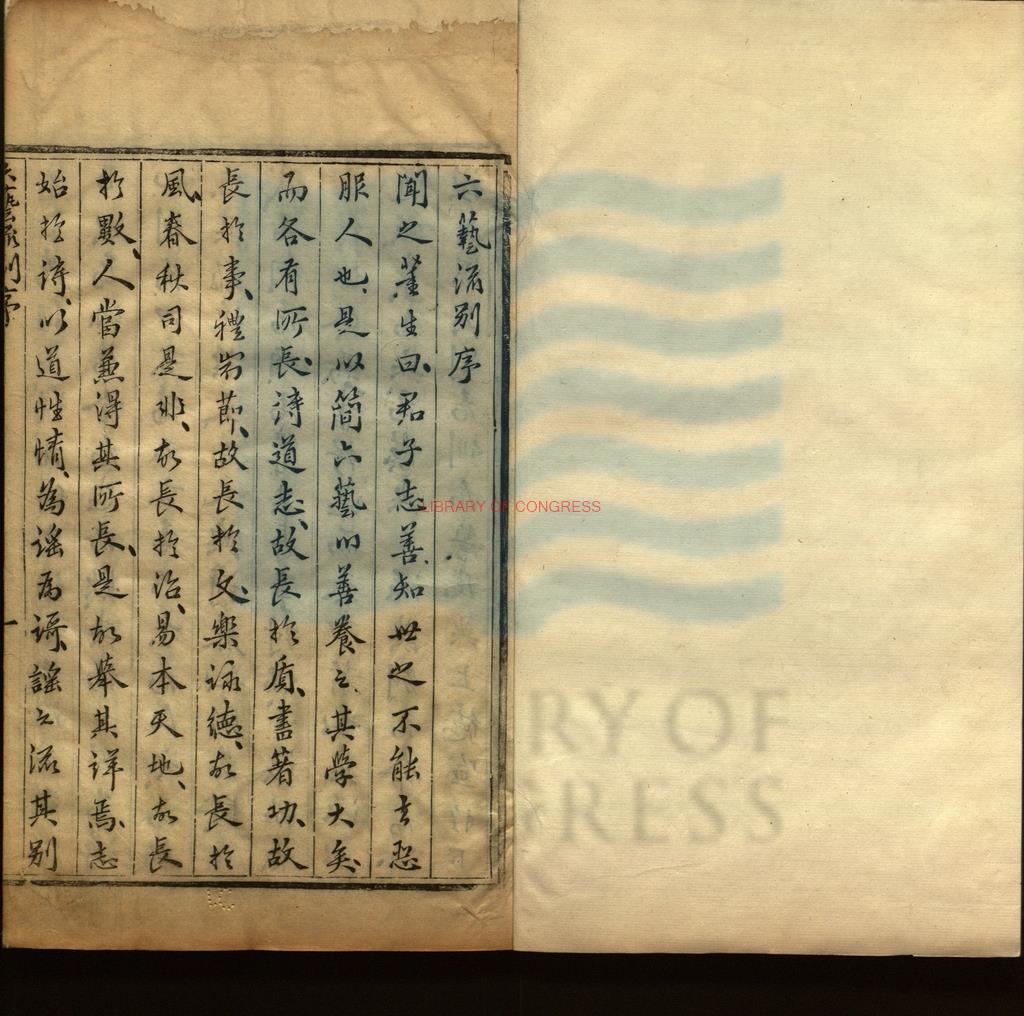 六藝流別序
聞之董生曰君子志善知世之不能去惡
服人也是以簡六藝以善養之其學大矣
而各有所長詩道志故長於質書著功故
長於事禮制節故長於文樂詠德故長於
風春秋司是非故長於治易本天地故長
於數人當兼得其所長是故舉其詳焉志
始於詩以道性情為謡為謌謡之流其别
六藝流别序
一
LIBRARY OF CONGRESS
RY OF
GRESS